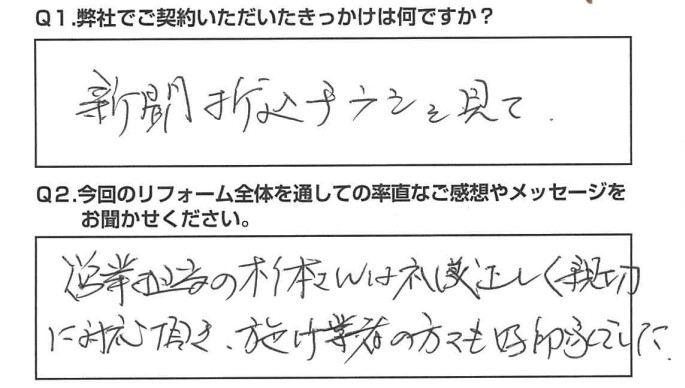 Q1.弊社でご契約いただいたきっかけは何ですか？
新聞折込チラシを見て.
Q2.今回のリフォーム全体を通しての率直なご感想やメッセージを
お聞かせください。
営業担当の さんは礼儀正しく親切
に対応頂き、施工業者の方々も好印象でした.